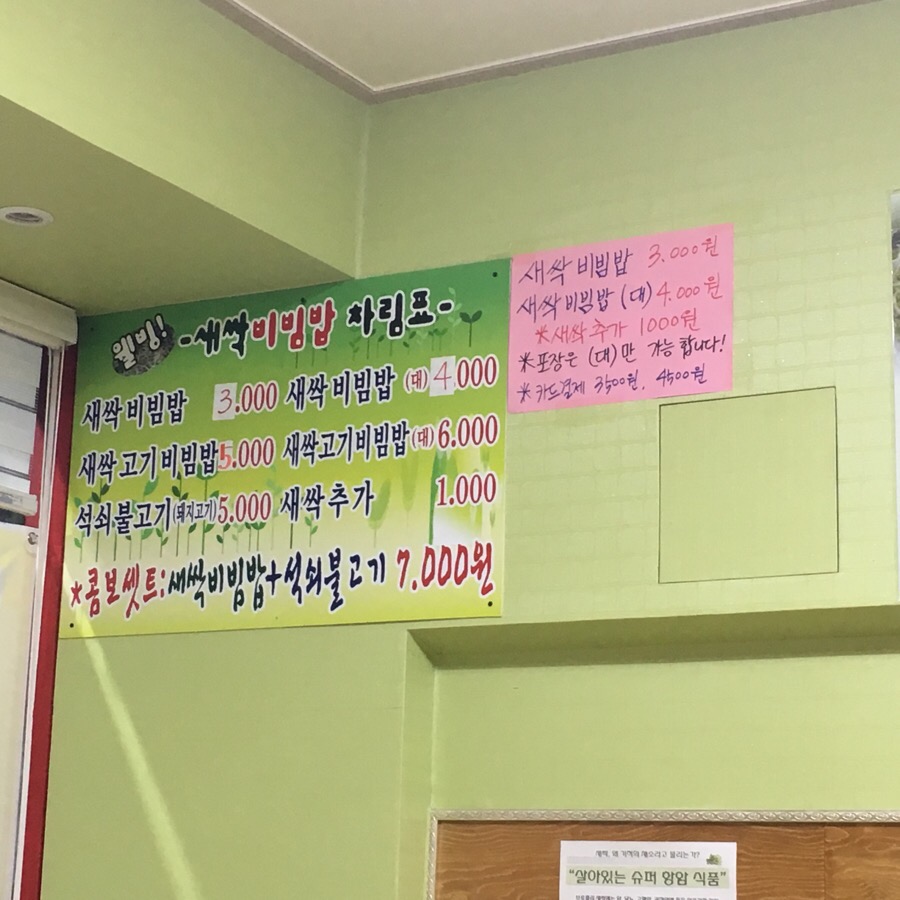 웰빙! -새싹비빔밥 차림표-
새싹비빔밥 3.000 새싹비빔밥 (대) 4.000
새싹고기비빔밥 5.000 새싹고기비빔밥(대) 6.000
석쇠불고기(돼지고기) 5.000 새싹추가 1.000
*콤보셋트:새싹비빔밥+석쇠불고기 7.000원
새싹비빔밥 3.000원
새싹비빔밥 (대) 4.000원
*새싹추가 1000원
*포장은 (대)만 가능합니다!
*카드결제 3500원, 4500원
새싹, 왜 기적의 채소라고 불리는가?
"살아있는 슈퍼 항암 식품"